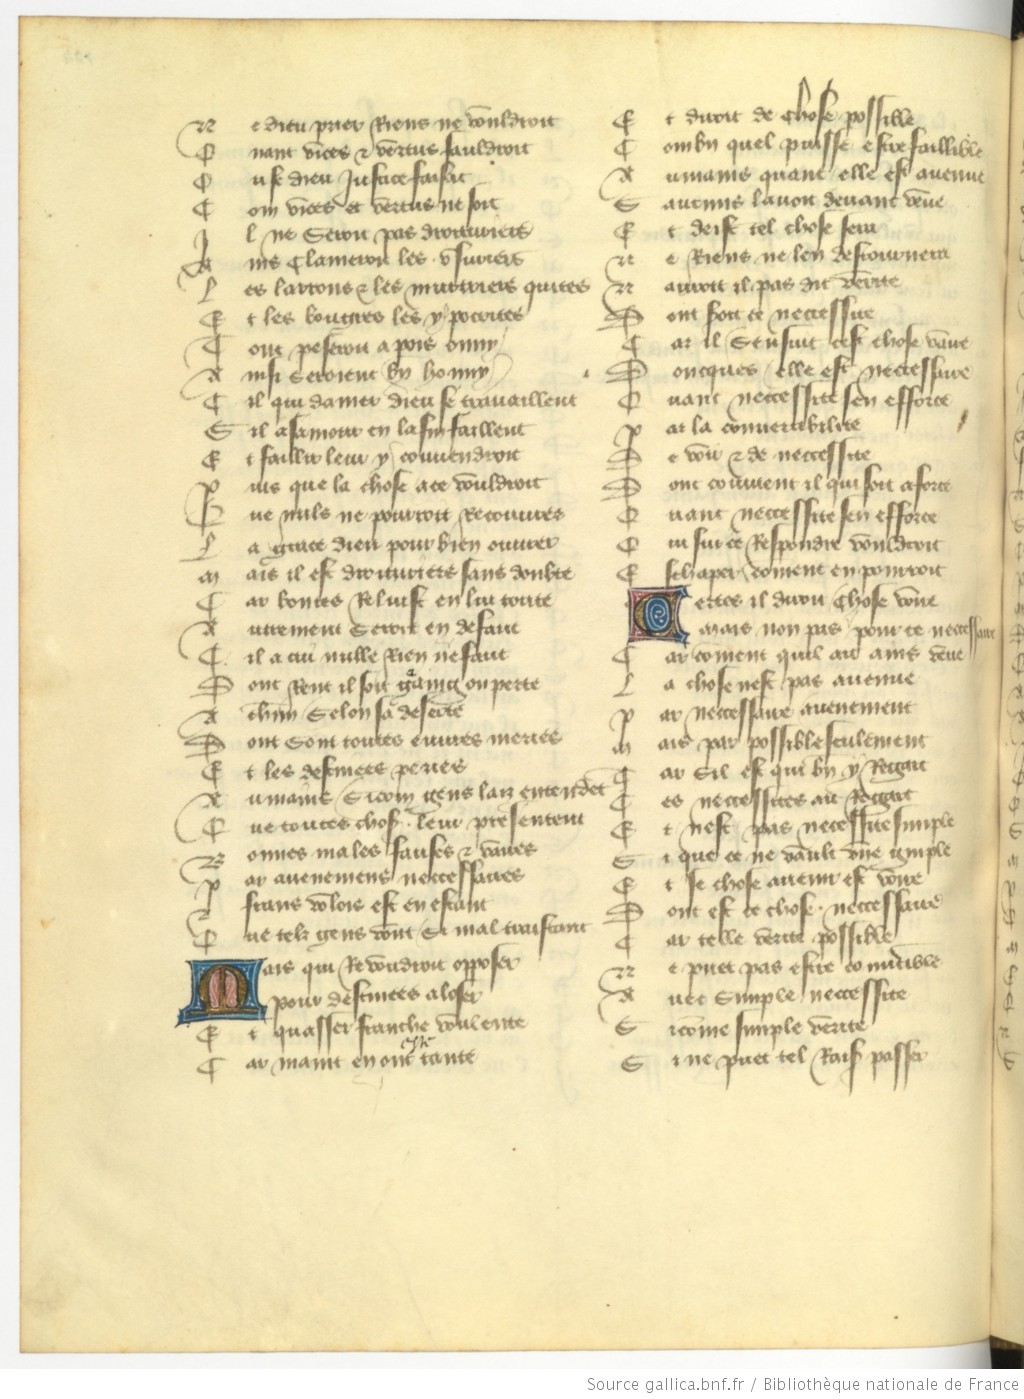 N e dieu prier Riens ne vouldroit
Q uant vices & vertus fauldroit
O u se dieu Justice faisoit
C om vices et vertus ne soit
I l ne Seroit pas droicturiers
A ins Clameroit les vsuriers
L es larrons & les murtriers quittes
E t les bougres les ypocrites
T out peseroit a pois onny
A insi Seroient bn honny
C il qui damer dieu se trauaillent
S il a samour en la fin faillent
E t faillir leur y conuendroit
P uis que la chose a ce vouldroit
Q ue nuls ne pourroit Recouurer
L a grace dieu pour bien ouurer
M ais il est droituriers sans doubte
C ar bontes Reluist en lui toute
A utrement Seroit en defaut
C il a cui nulle Rien ne faut
D ont Rent il soit gaaing ou perte
A chun Selon sa deserte
D ont Sont toutes euures meries
E t les destinees peries
A umains Sicom gens laiz entendet
Q ue toutes chos. leur presentent
B onnes males fauses & vaires
P ar auenemens neccessaires
F rans voloirs est en estant
Q ue telz gens vont Si mal traistant
Mais qui Revoudroit opposer
Pour destinees aloser
E t quasser franche voulente
C ar maint en ont tante
E t diroit de Chose possible
C ombn quel puisse estre faillible
A umains quant elle est auenue
S aucuns lauoit deuant veue
E t deist tel chose sera
N e Riens ne len destournera
N auroit il pas dit verite
D ont soit ce neccessite
C ar il Sensuit cest chose vaire
D oncques elle est neccessaire
Q uant neccessite sen efforce
P ar la conuertibilite
D e voir & de neccessite
D ont conuient il qui soit a force
Q uant neccessite sen efforce
Q ui sur ce Respondre vouldroit
E schaper coment en pourroit
Certes il diroit Chose voire
Mais non pas pour ce neccessaire
C ar coment quil ait ains veue
L a chose nest pas auenue
P ar neccessaire auenement
M ais par possible seulement
C ar Sil est qui bn y Regart
C es neccessites au Regart
E t nest pas necessite simple
S i que ce ne vault vne guimple
E t se chose auenir est voire
D ont est ce chose neccessaire
C ar telle verite possible
N e puet pas estre conuertible
A uec Simple neccessite
S icome simple verite
S i ne puet tel Raisō passer
Source gallica.bnf.fr / Bibliothèque nationale de France